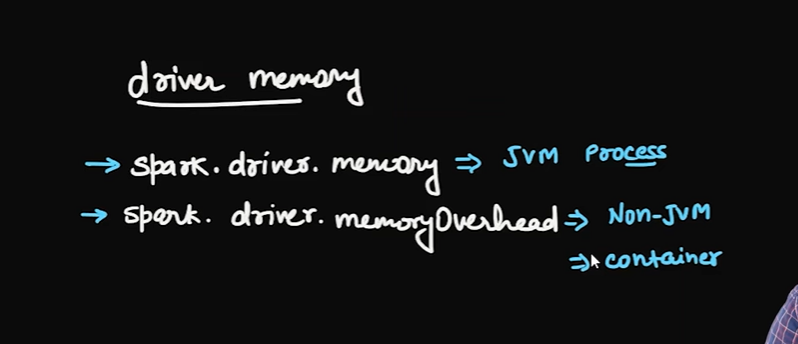 driver memory
→ spark.driver.memory ⇒ JVM Process
→ spark.driver.memoryOverhead ⇒ Non-JVM
⇒ container